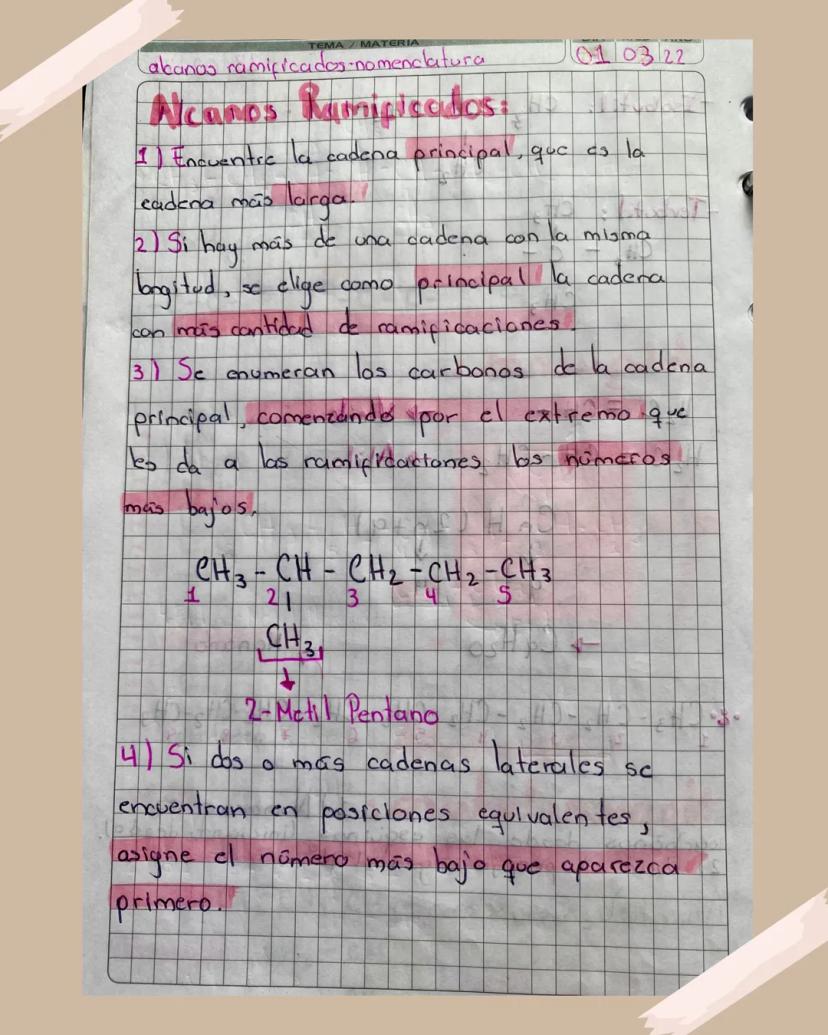 TEMA / MATERIA
alcanos ramificados-nomenclatura 01 03 22
Alcanos Ramificados:
1) Encuentre la cadena principal, que es la
cadena más larga.
2) Si hay más de una cadena con la misma
longitud, se elige como principal la cadena
con más cantidad de ramificaciones.
3) Se enumeran los carbonos de la cadena
principal, comenzando por el extremo que
les da a las ramifidactones los números
más bajos.
CH3 - CH - CH2 - CH2 - CH3
1 2 3 4 5
CH3
2-Metil Pentano
4) Si dos o más cadenas laterales se
encuentran en posiciones equivalentes,
asigne el número más bajo que aparezca
primero.